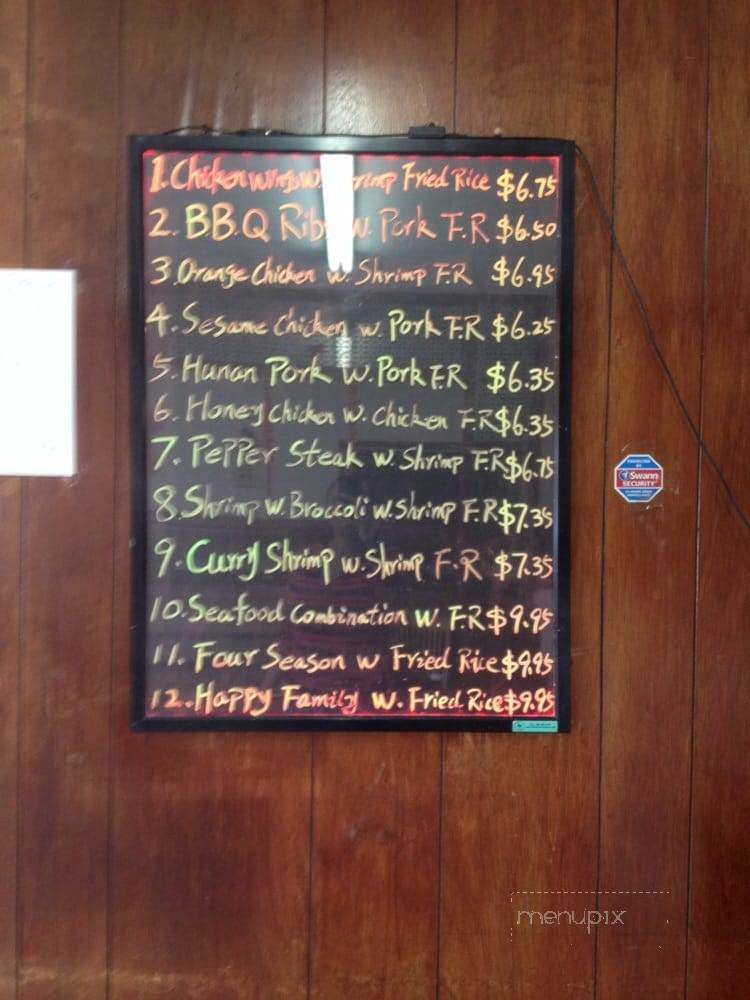 1. Chicken wings w. Shrimp Fried Rice $6.75
2. BB.Q Ribs w. Pork F.R $6.50
3. Orange Chicken w. Shrimp F.R $6.95
4. Sesame Chicken w. Pork F.R $6.25
5. Hunan Pork w. Pork F.R $6.35
6. Honey chicken w. Chicken F.R $6.35
7. Pepper Steak w. Shrimp F.R $6.75
8. Shrimp w. Broccoli w. Shrimp F.R $7.35
9. Curry Shrimp w. Shrimp F.R $7.35
10. Seafood Combination w. F.R $9.95
11. Four Season w Fried Rice $9.95
12. Happy Family w. Fried Rice $9.95
PROTECTED
BY
Swann
SECURITY
menupix